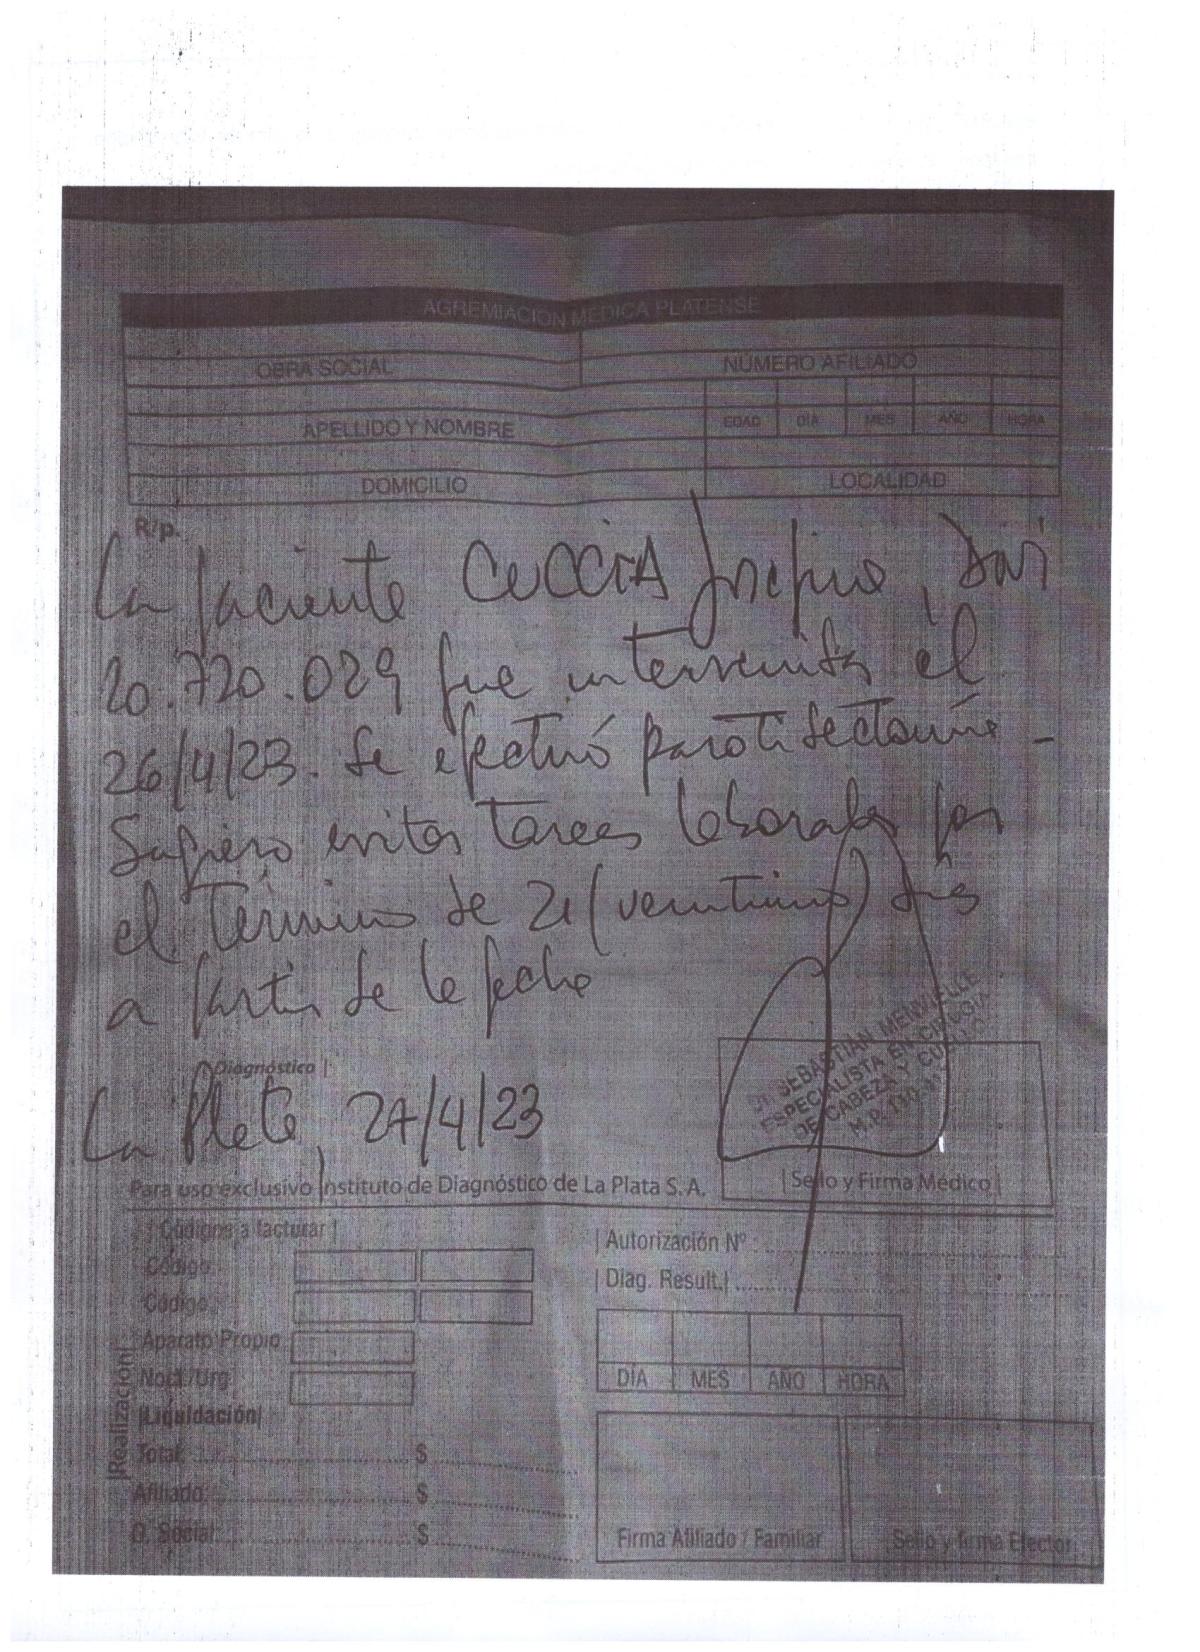 AGREMIACIÓN MEDICA PLATENSE
OBRA SOCIAL
NÚMERO AFILIADO
APELLIDO Y NOMBRE
EDAD DÍA MES AÑO HORA
DOMICILIO
LOCALIDAD
R/p.
La paciente CUCCIA Josefina, DNI
20.720.029 fue intervenida el
26/4/23. Se efectuó parotidectomía -
Sugiero evitar tareas laborales por
el término de 21 (veintiuno) días
a partir de la fecha
Diagnóstico |
La Plata, 27/4/23
Dr. SEBASTIAN MEINVIELLE
ESPECIALISTA EN CIRUGIA
DE CABEZA Y CUELLO
M.P.
| Sello y Firma Médico |
Para uso exclusivo Instituto de Diagnóstico de La Plata S.A.
| Códigos a facturar |
Código
Código
Aparato Propio
Noct./Urg.
|Realización|
|Liquidación|
Total $
Afiliado $
O. Social $
| Autorización Nº :
| Diag. Result.|
DÍA MES AÑO HORA
Firma Afiliado / Familiar
Sello y firma Efector